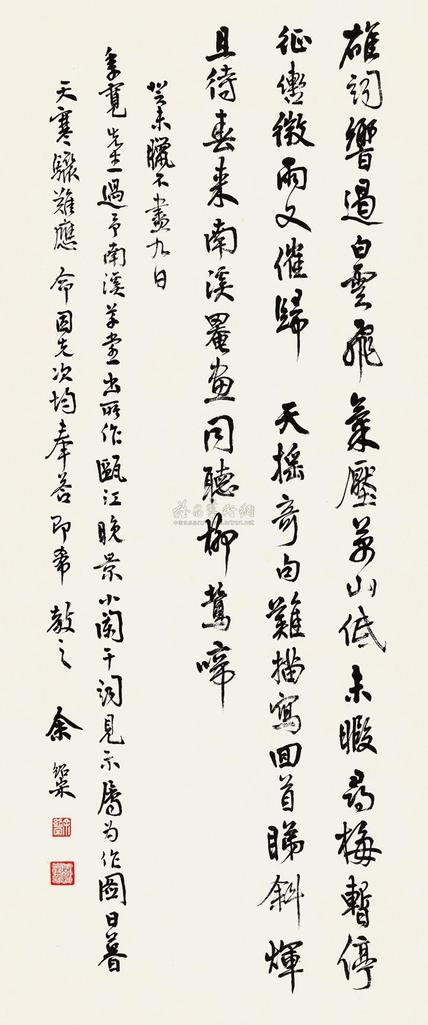 雄詞響遏白雲飛氣壓萬山低未暇尋梅暫停
征轡微雨又催歸 天搖奇句難描寫回首睇斜煇
且待春來南溪罨畫同聽柳鶯啼
癸未臘不盡九日
季寬先生過予南溪草堂出所作甌江晚景小闌干詞見示屬為作圖日暮
天寒驟難應 命因先次均奉答即希 教之 余紹宋